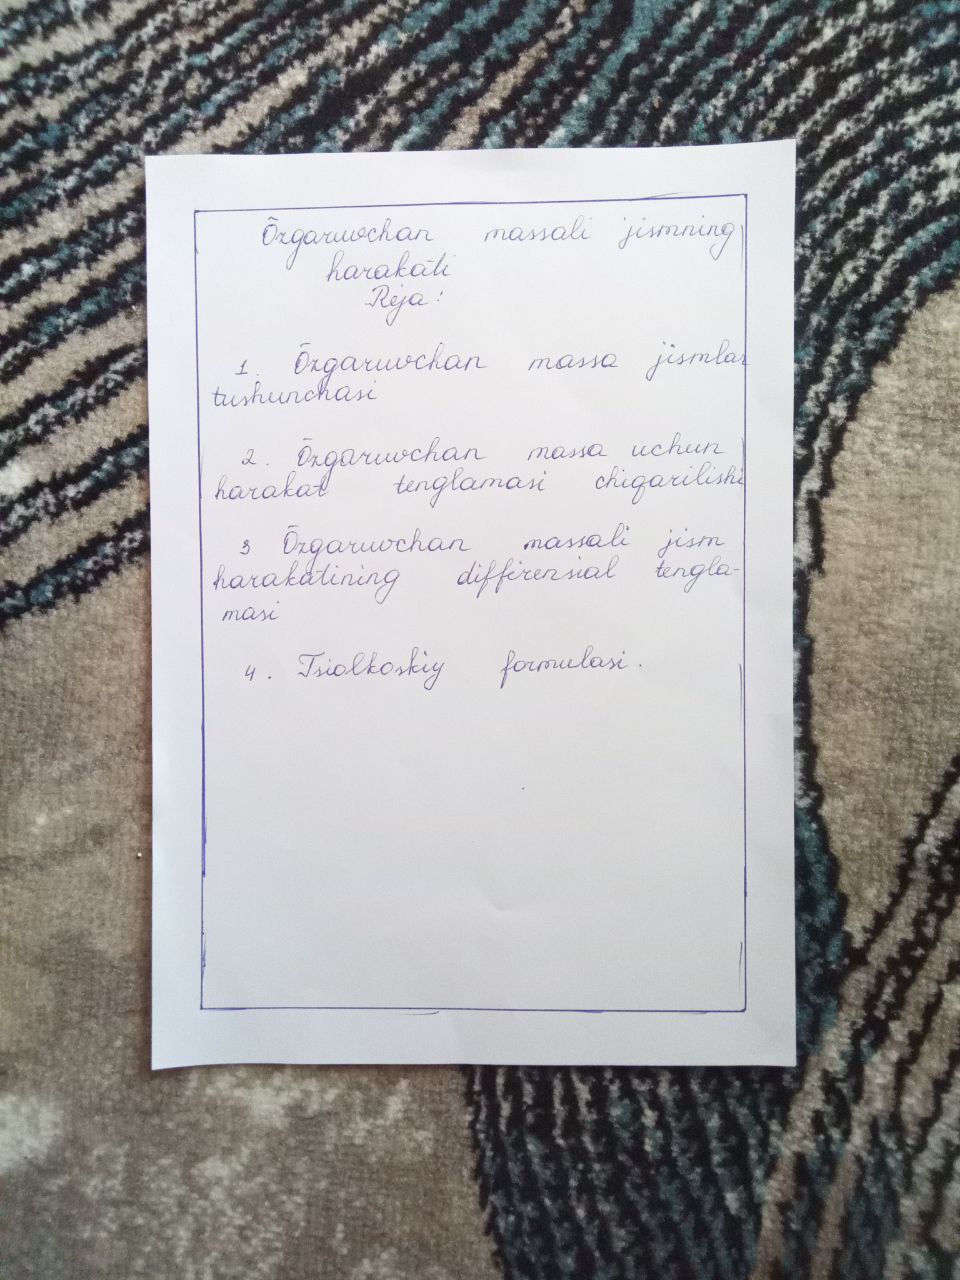 Õzgaruvchan massali jismning
harakati
Reja:
1. Õzgaruvchan massa jismlar
tushunchasi
2. Õzgaruvchan massa uchun
harakat tenglamasi chiqarilishi
3 Õzgaruvchan massali jism
harakatining differensial tengla-
masi
4. Tsiolkoskiy formulasi.